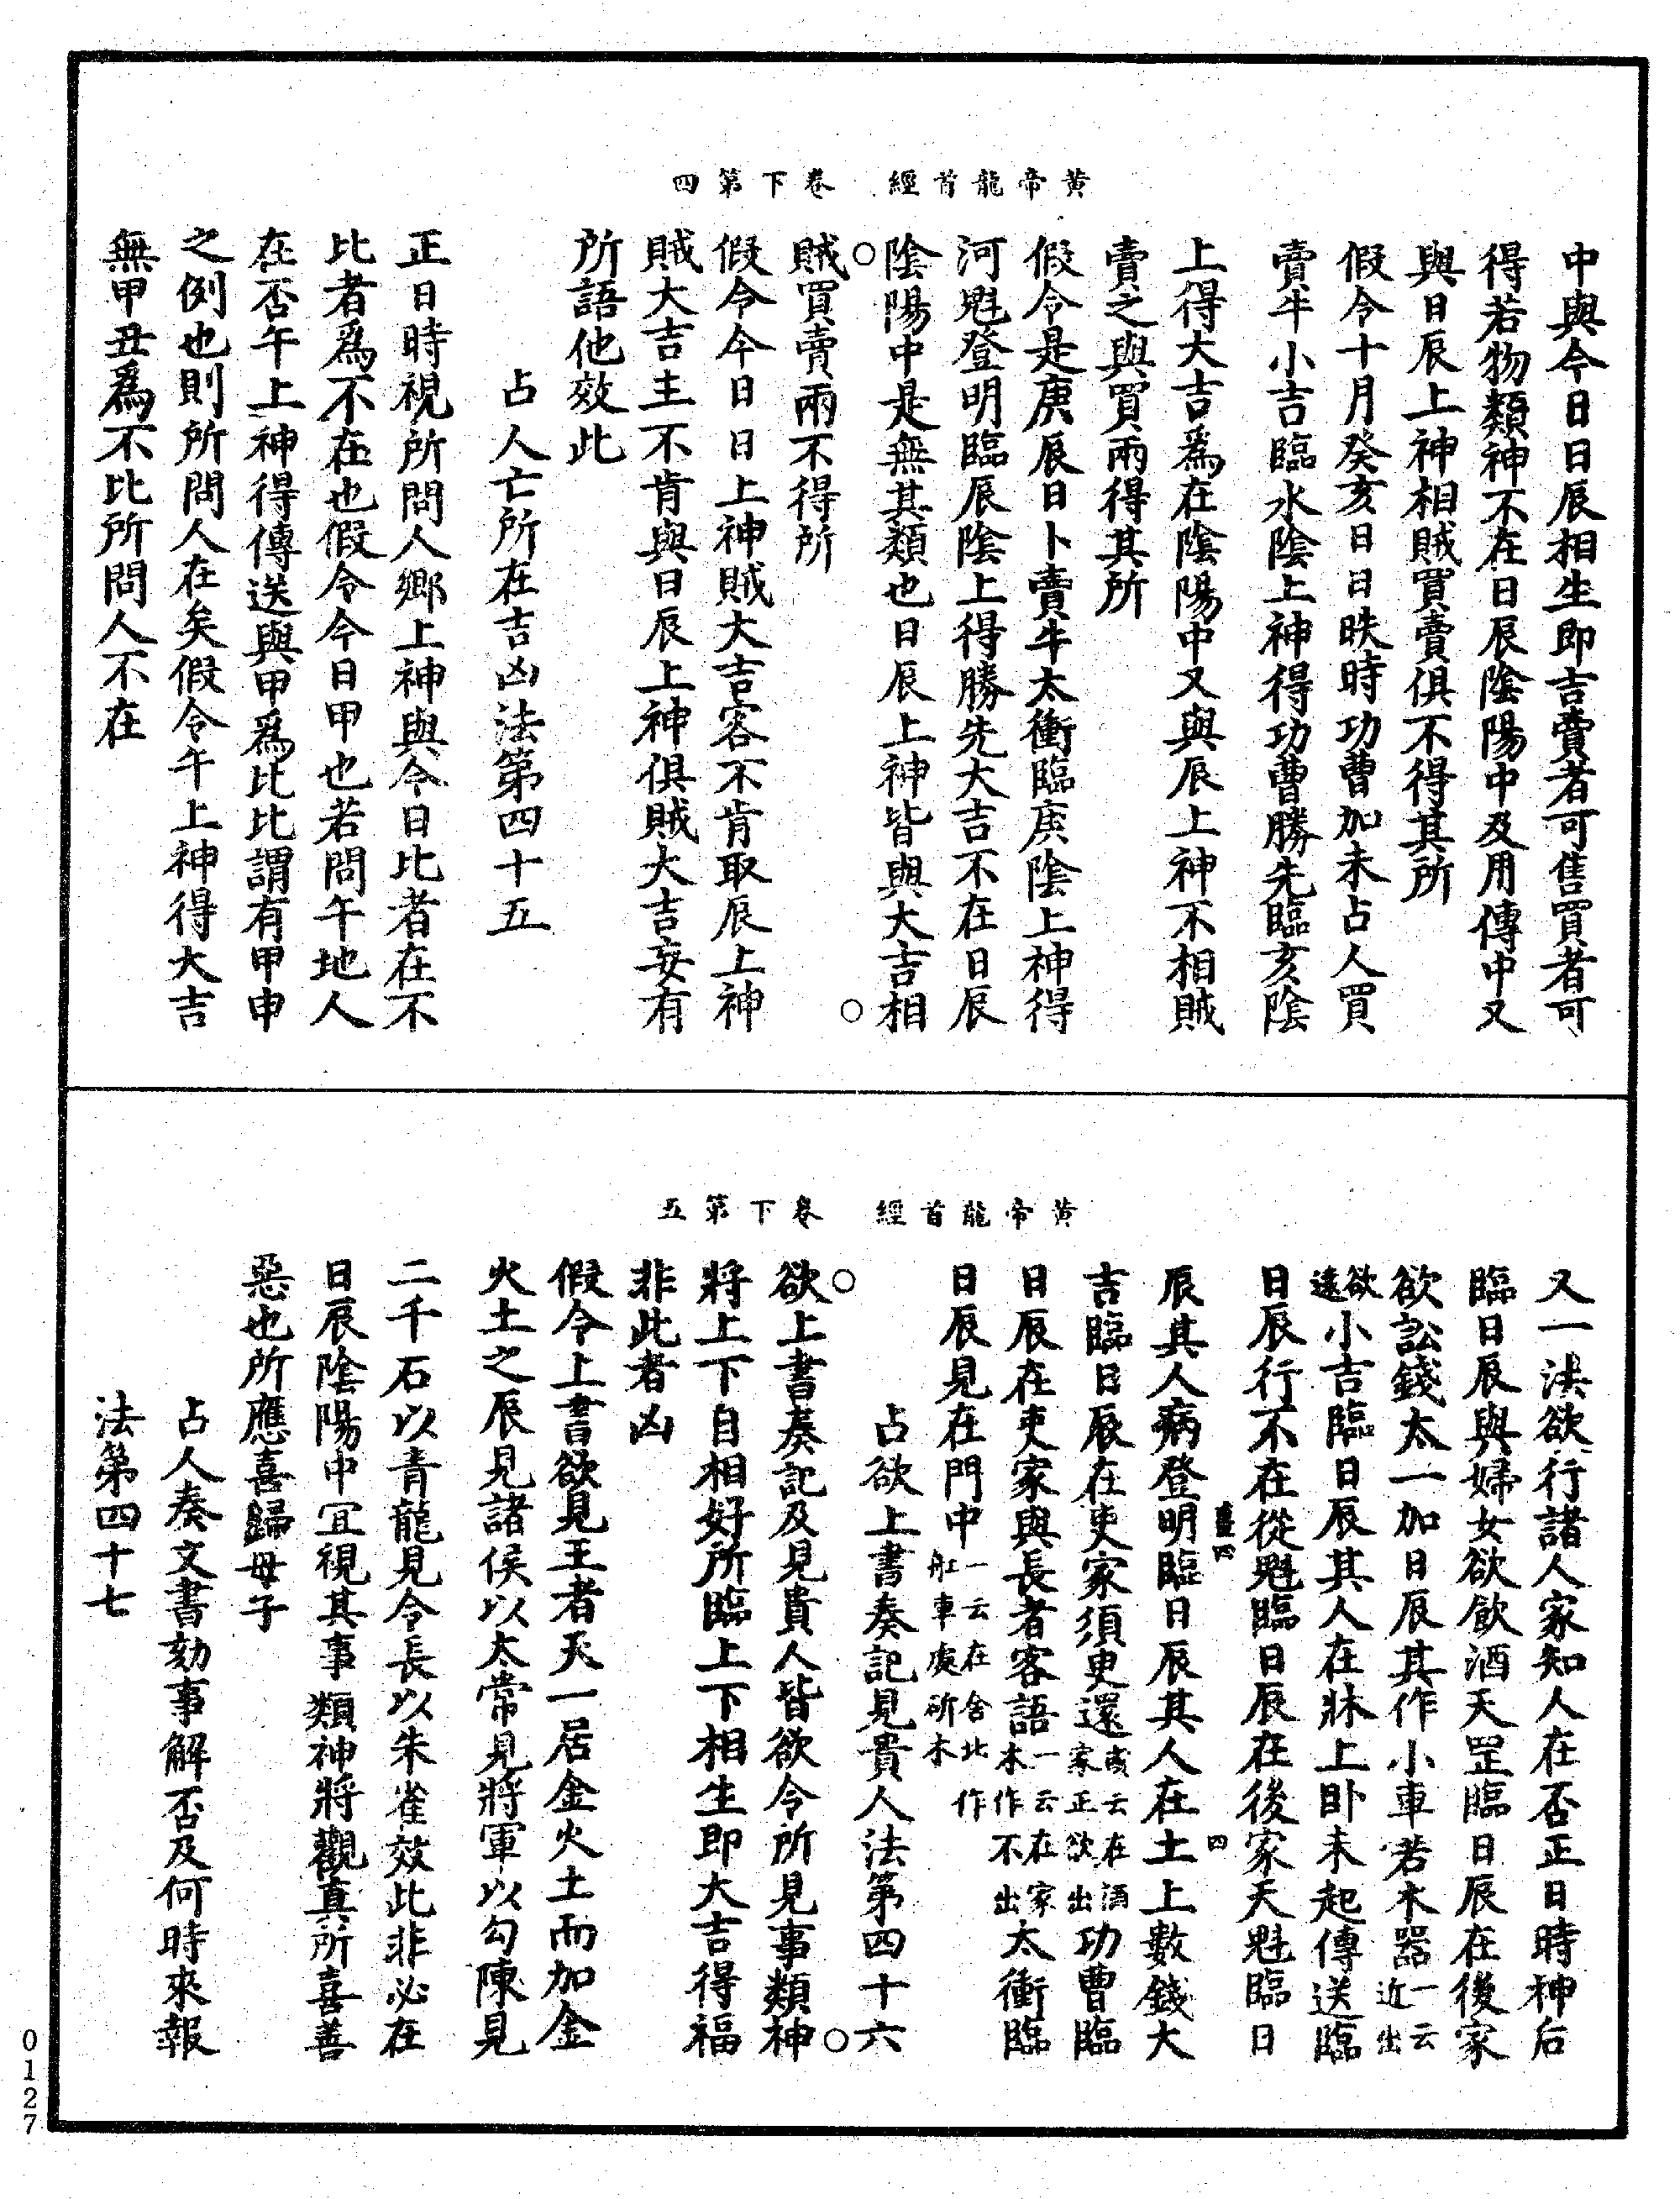 黃帝龍首經　卷下第四
中與今日日辰相生即吉賣者可售買者可
得若物類神不在日辰陰陽中及用傳中又
與日辰上神相賊買賣俱不得其所
假令十月癸亥日日昳時功曹加未占人買
賣牛小吉臨水陰上神得功曹勝先臨亥陰
上得大吉爲在陰陽中又與辰上神不相賊
賣之與買兩得其所
假令是庚辰日卜賣牛太衝臨庚陰上神得
河魁登明臨辰陰上得勝先大吉不在日辰
陰陽中是無其類也日辰上神皆與大吉相
賊買賣兩不得所
假令今日日上神賊大吉客不肯取辰上神
賊大吉主不肯與日辰上神俱賊大吉妄有
所語他效此
占人亡所在吉凶法第四十五
正日時視所問人鄉上神與今日比者在不
比者爲不在也假令今日甲也若問午地人
在否午上神得傳送與甲爲比比謂有甲申
之例也則所問人在矣假令午上神得大吉
無甲丑爲不比所問人不在
黃帝龍首經　卷下第五
又一法欲行諸人家知人在否正日時神后
臨日辰與婦女欲飲酒天罡臨日辰在後家
欲訟錢太一加日辰其作小車若木器一云近出
欲遠小吉臨日辰其人在牀上卧未起傳送臨
日辰行不在從魁臨日辰在後家天魁臨日
辰其人病登明臨日辰其人在土上數錢大
吉臨日辰在吏家須更還或云在酒家正欲出功曹臨
日辰在吏家與長者客語一云在家木作不出太衝臨
日辰見在門中一云在舍北作舡車處斫木
占欲上書奏記見貴人法第四十六
欲上書奏記及見貴人皆欲令所見事類神
將上下自相好所臨上下相生即大吉得福
非此者凶
假令上書欲見王者天一居金火土而加金
火土之辰見諸侯以太常見將軍以勾陳見
二千石以青龍見令長以朱雀效此非必在
日辰陰陽中宜視其事類神將觀真所喜善
惡也所應喜歸母子
占人奏文書劾事解否及何時來報
法第四十七
0127